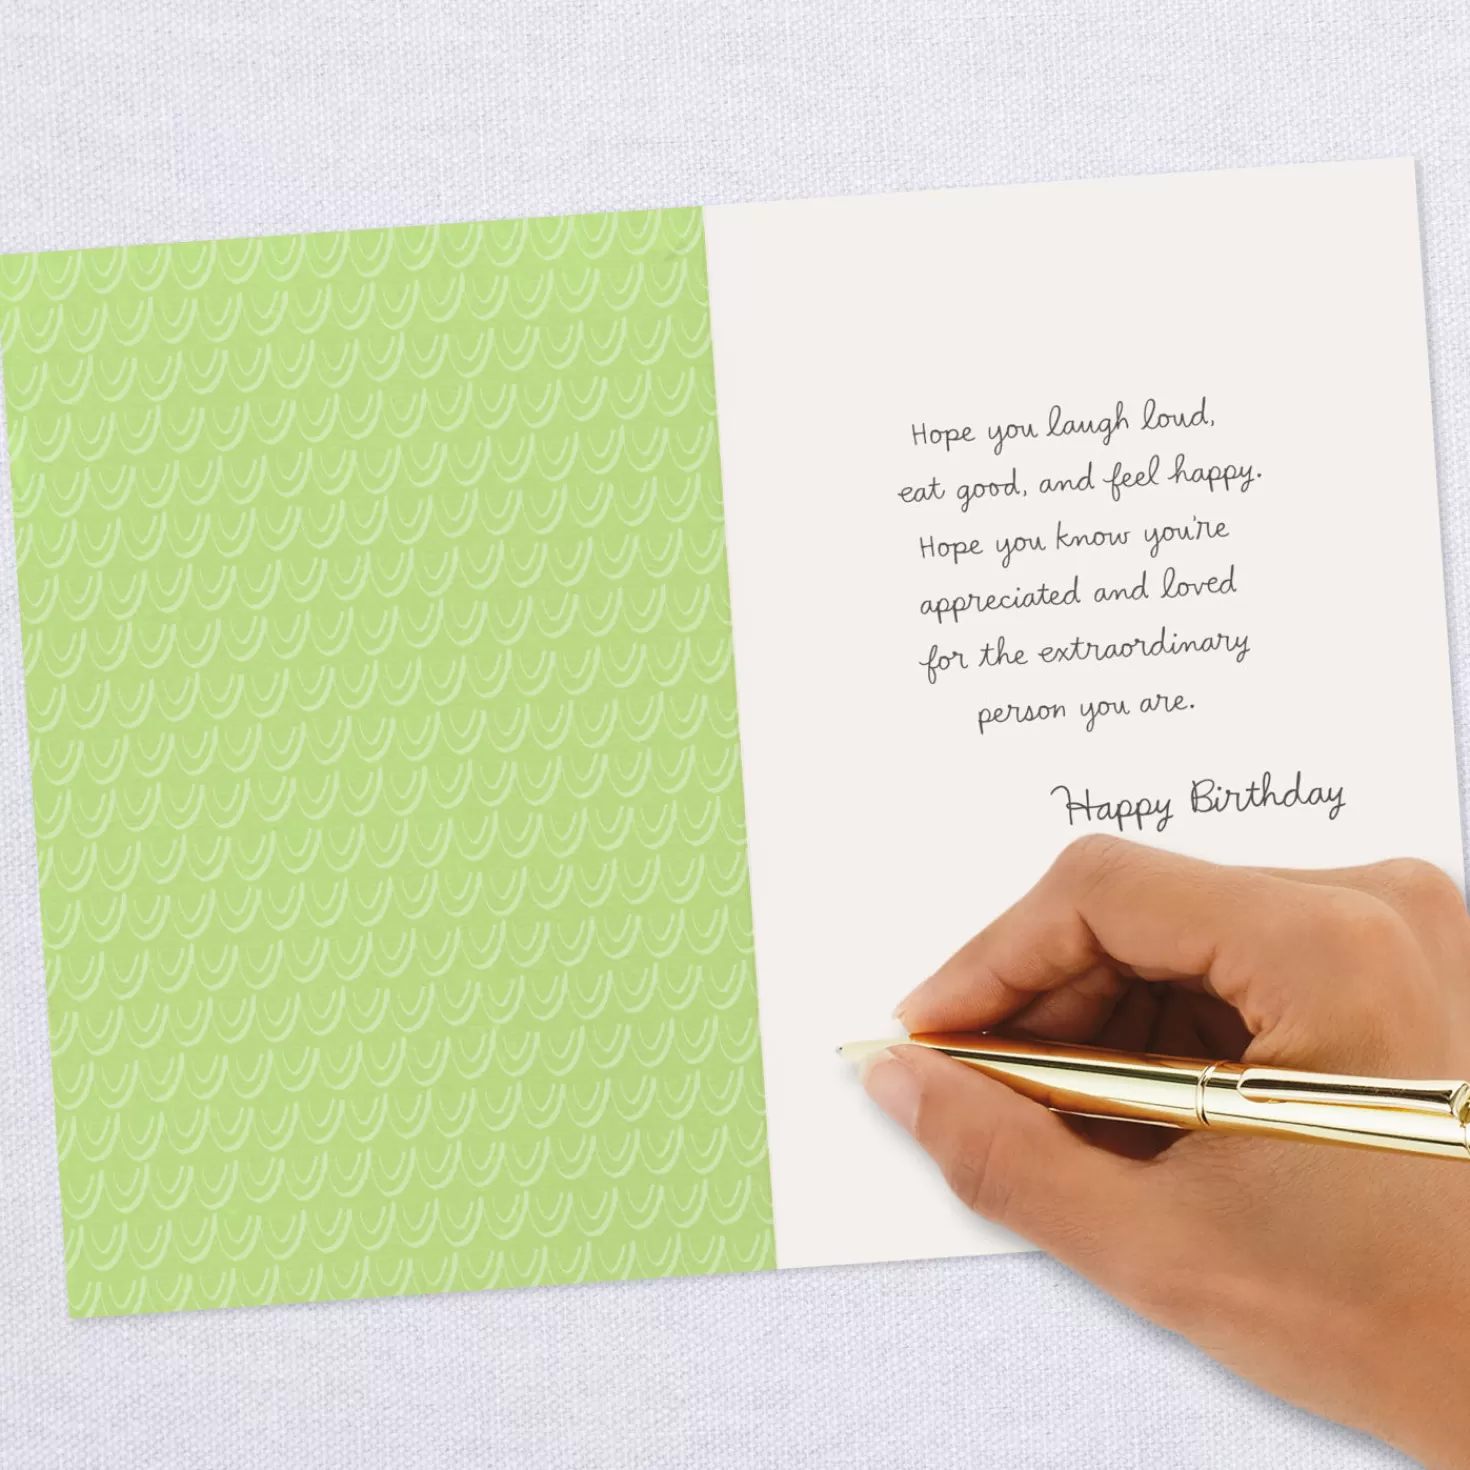 Hope you laugh loud,
eat good, and feel happy.
Hope you know you're
appreciated and loved
for the extraordinary
person you are.
Happy Birthday